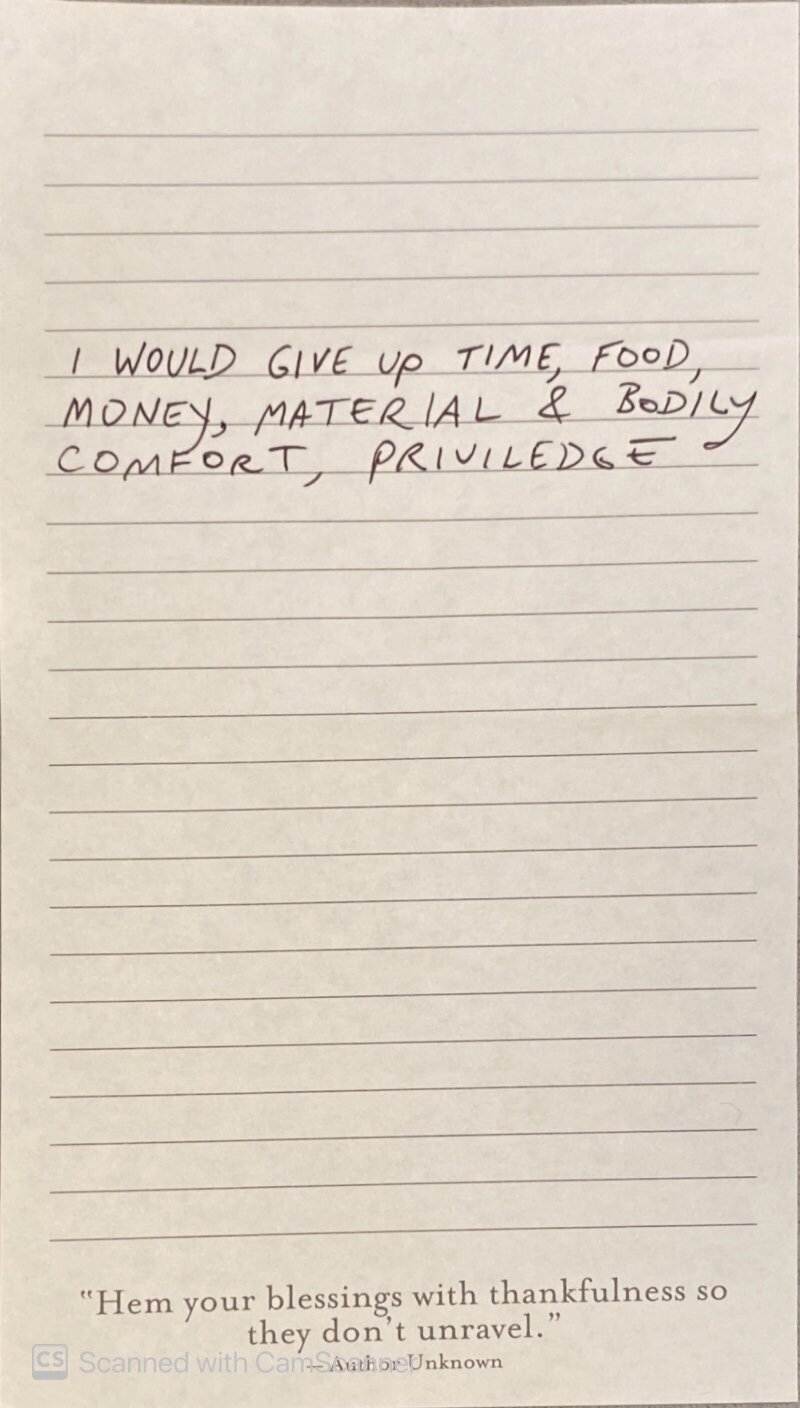 I WOULD GIVE UP TIME, FOOD,
MONEY, MATERIAL & BODILY
COMFORT, PRIVILEDGE
"Hem your blessings with thankfulness so
they don't unravel."
— Author Unknown
CS Scanned with CamScanner